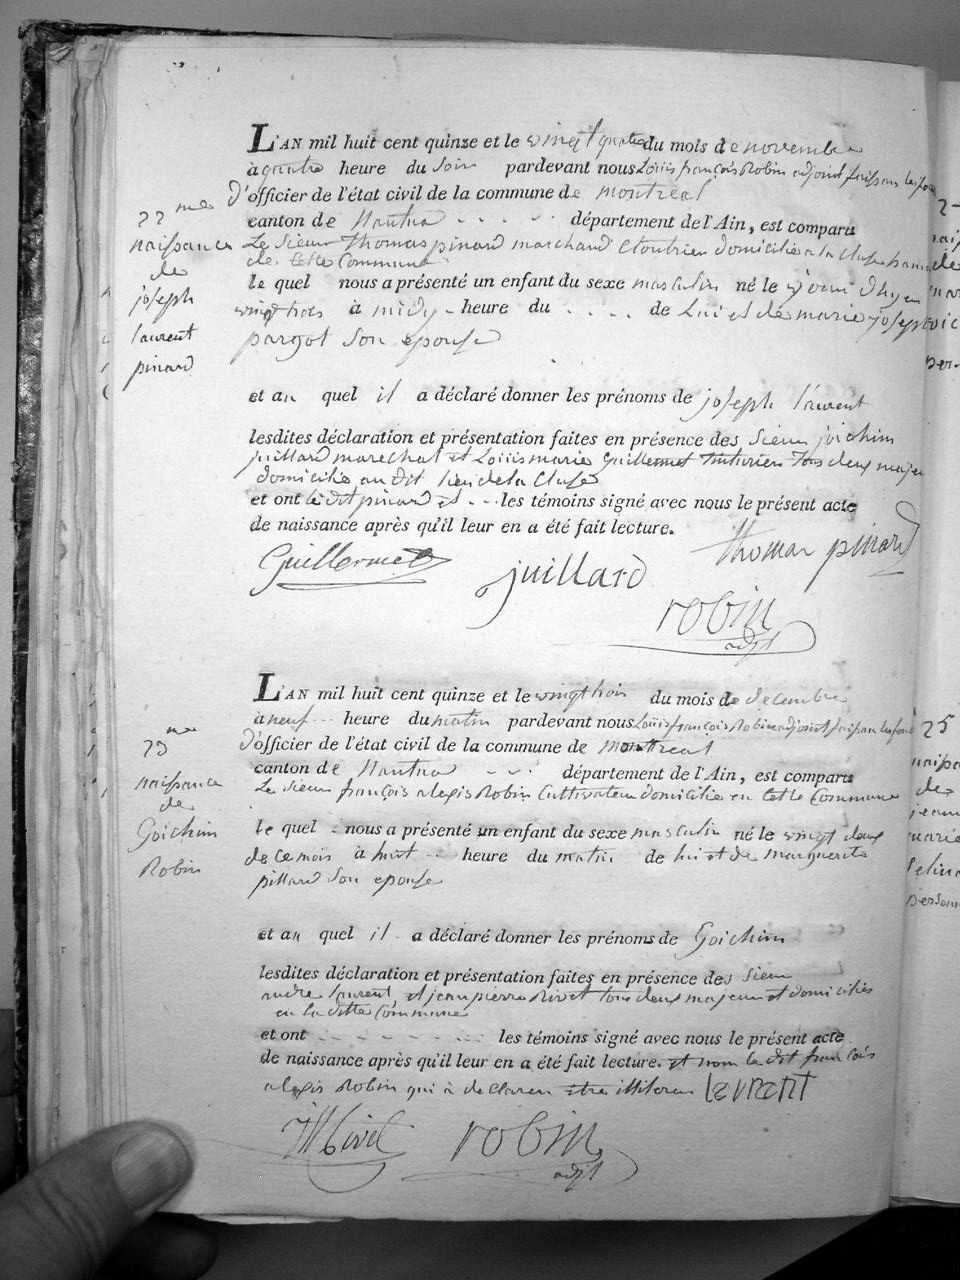 L'AN mil huit cent quinze et le vingt quatre du mois de novembre
à quatre heure du Soir pardevant nous Louis françois Robin adjoint faisant les fon
d'officier de l'état civil de la commune de montréal
canton de Nantua département de l'Ain, est comparu
Le Sieur Thomas pinard marchand domicilié a la Cluse
de cette Commune
le quel nous a présenté un enfant du sexe masculin né le
vingt trois à midy heure du . . . . de Lui et de marie joseph
pargot Son epouse
22me
naissance
de
joseph
laurent
pinard
et au quel il a déclaré donner les prénoms de joseph laurent
lesdites déclaration et présentation faites en présence des Sieur joichim
juillard marechal et Louis marie Guillermet tous deux majeur
domiciliés au dit lieu de la Cluse
et ont le dit pinard et les témoins signé avec nous le présent acte
de naissance après qu'il leur en a été fait lecture.
Guillermet juillard thomas pinard
robin
adjt
L'AN mil huit cent quinze et le vingt trois du mois de decembre
à neuf heure du matin pardevant nous Louis françois Robin adjoint faisant les fon
d'officier de l'état civil de la commune de montreal
canton de Nantua département de l'Ain, est comparu
Le Sieur françois alexis Robin Cultivateur domicilié en cette Commune
le quel nous a présenté un enfant du sexe masculin né le vingt deux
de ce mois à huit heure du matin de lui et de marguerite
pillard Son epouse
23me
naissance
de
Goichim
Robin
et au quel il a déclaré donner les prénoms de Goichim
lesdites déclaration et présentation faites en présence des Sieur
andre laurent et jean pierre tous deux majeur et domiciliés
en la ditte Commune
et ont les témoins signé avec nous le présent acte
de naissance après qu'il leur en a été fait lecture. et non le dit françois
alexis Robin qui à declaren etre illiteré laurant
robin
adjt
25
naissa
de
jeann
marie
person